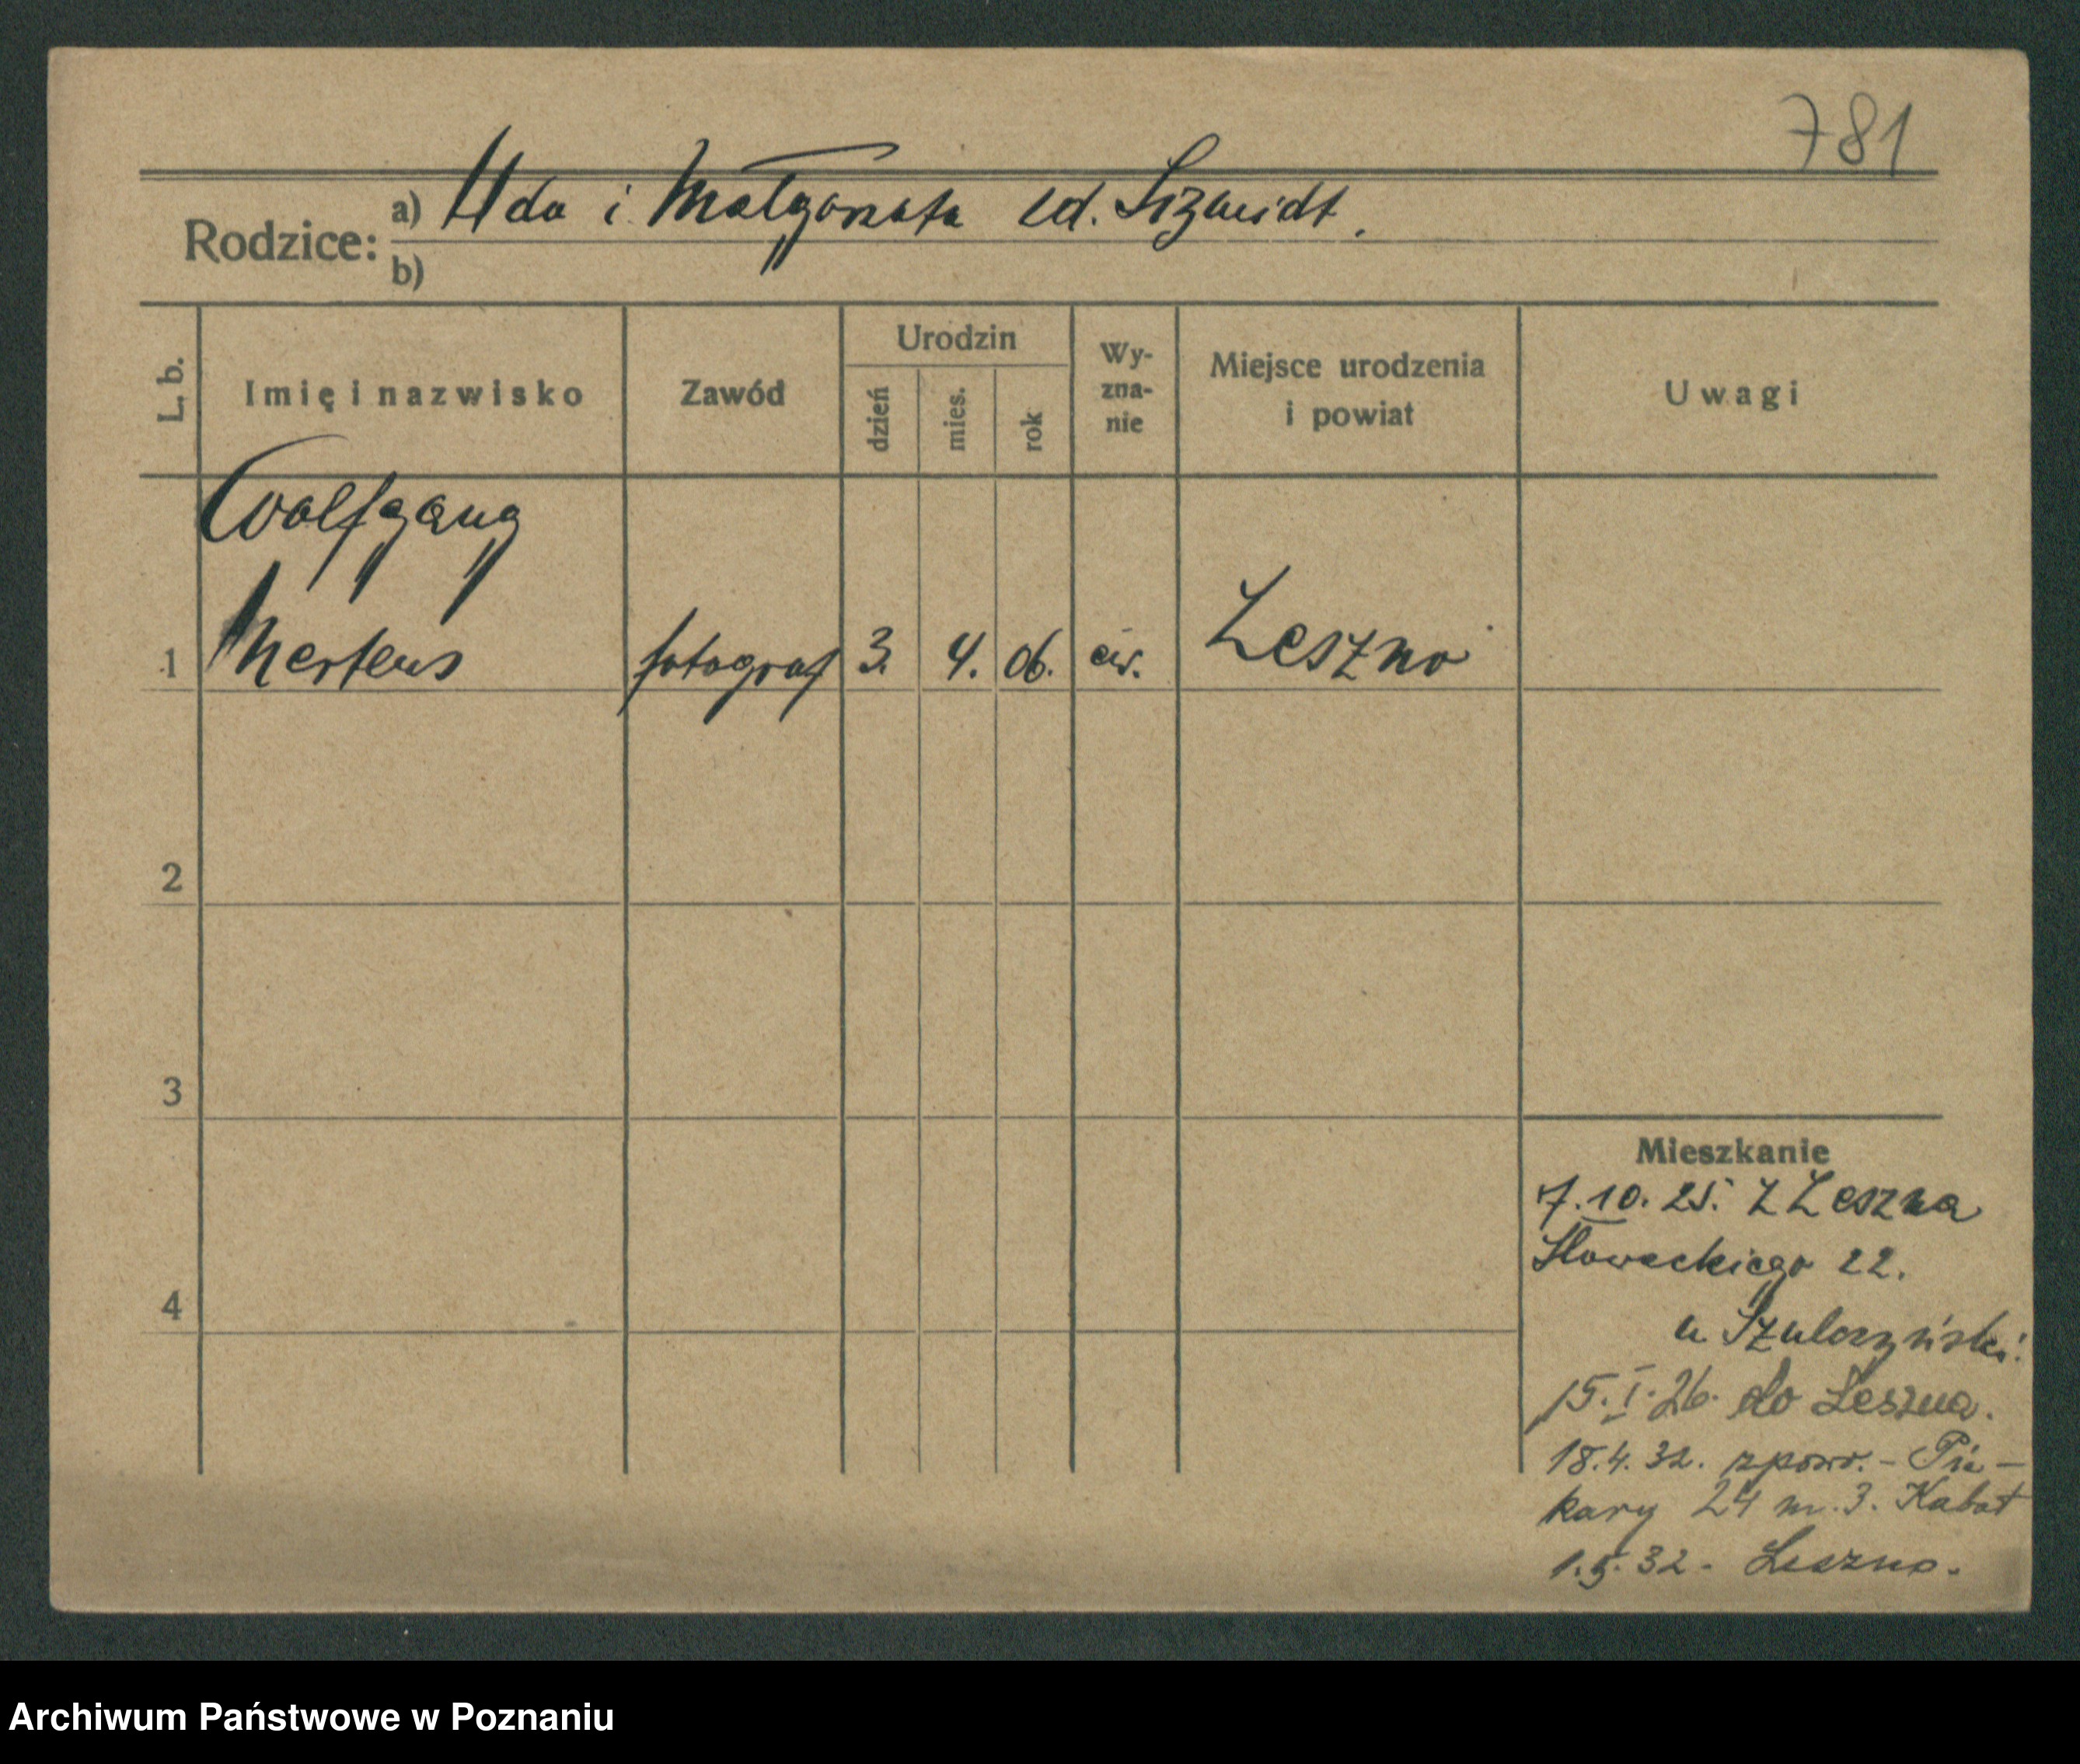 781
Rodzice:
a) Udo i Małgorzata ed. Szmidt.
b)
L. b.
Imię i nazwisko
Zawód
Urodzin
dzień
mies.
rok
Wy-
zna-
nie
Miejsce urodzenia
i powiat
Uwagi
Wolfgang
1 Mertens fotograf 3. 4. 06. ew. Leszno
2
3
4
Mieszkanie
7.10.25. z Leszna
Słowackiego 22.
u Szulczyński
15.I.26. do Leszna.
18.4.32. zpowr. - Pie-
kary 24 m. 3. Kabat
1.5.32. Leszno.
Archiwum Państwowe w Poznaniu